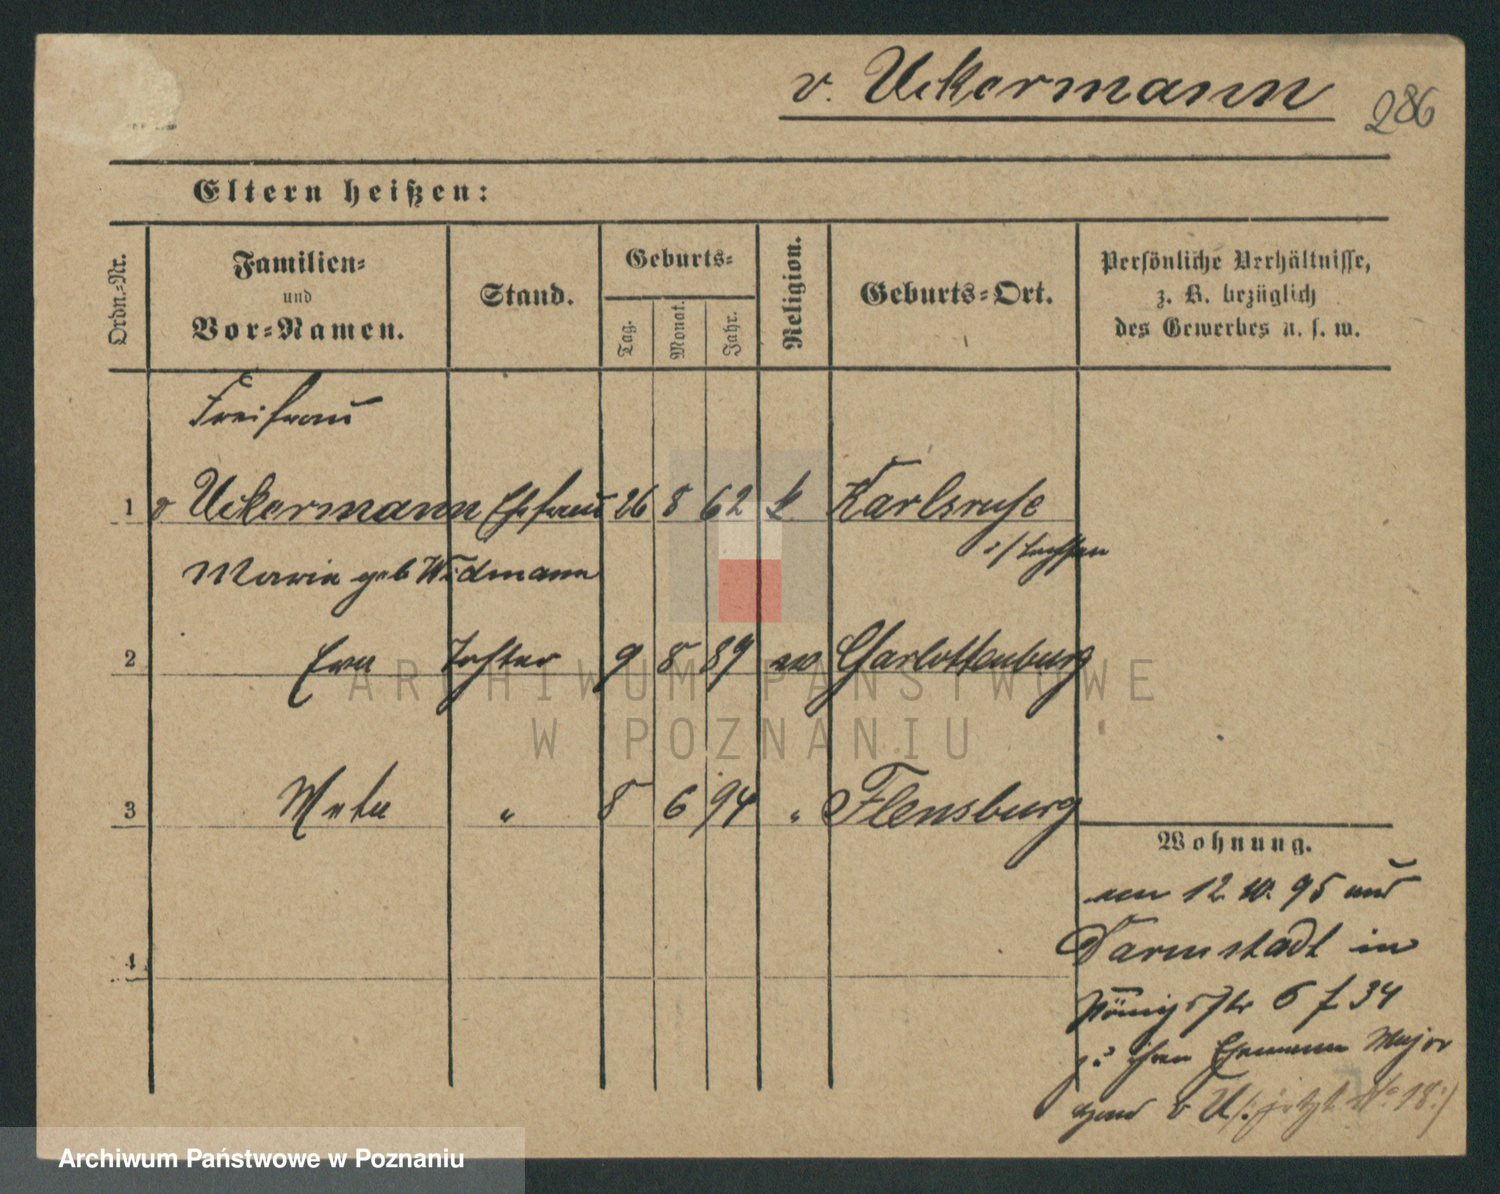 v. Uckermann 286
Eltern heißen:
Ordn.-Nr.
Familien-
und
Vor-Namen.
Stand.
Geburts-
Tag.
Monat.
Jahr.
Religion.
Geburts-Ort.
Persönliche Verhältnisse,
z. B. bezüglich
des Gewerbes u. s. w.
Freifrau
1 v Uckermann Ehefrau 26 8 62 k Karlsruhe
Marie geb Widmann
2 Eva Tochter 9 8 89 ev Charlottenburg
3 Meta " 8 6 94 " Flensburg
4
Wohnung.
am 12. 10. 95 aus
Darmstadt in
Königstr 6 f. 34
zu ihrem Ehemann Major
v U /: jetzt No 18 :/
ARCHIWUM PAŃSTWOWE
W POZNANIU
Archiwum Państwowe w Poznaniu